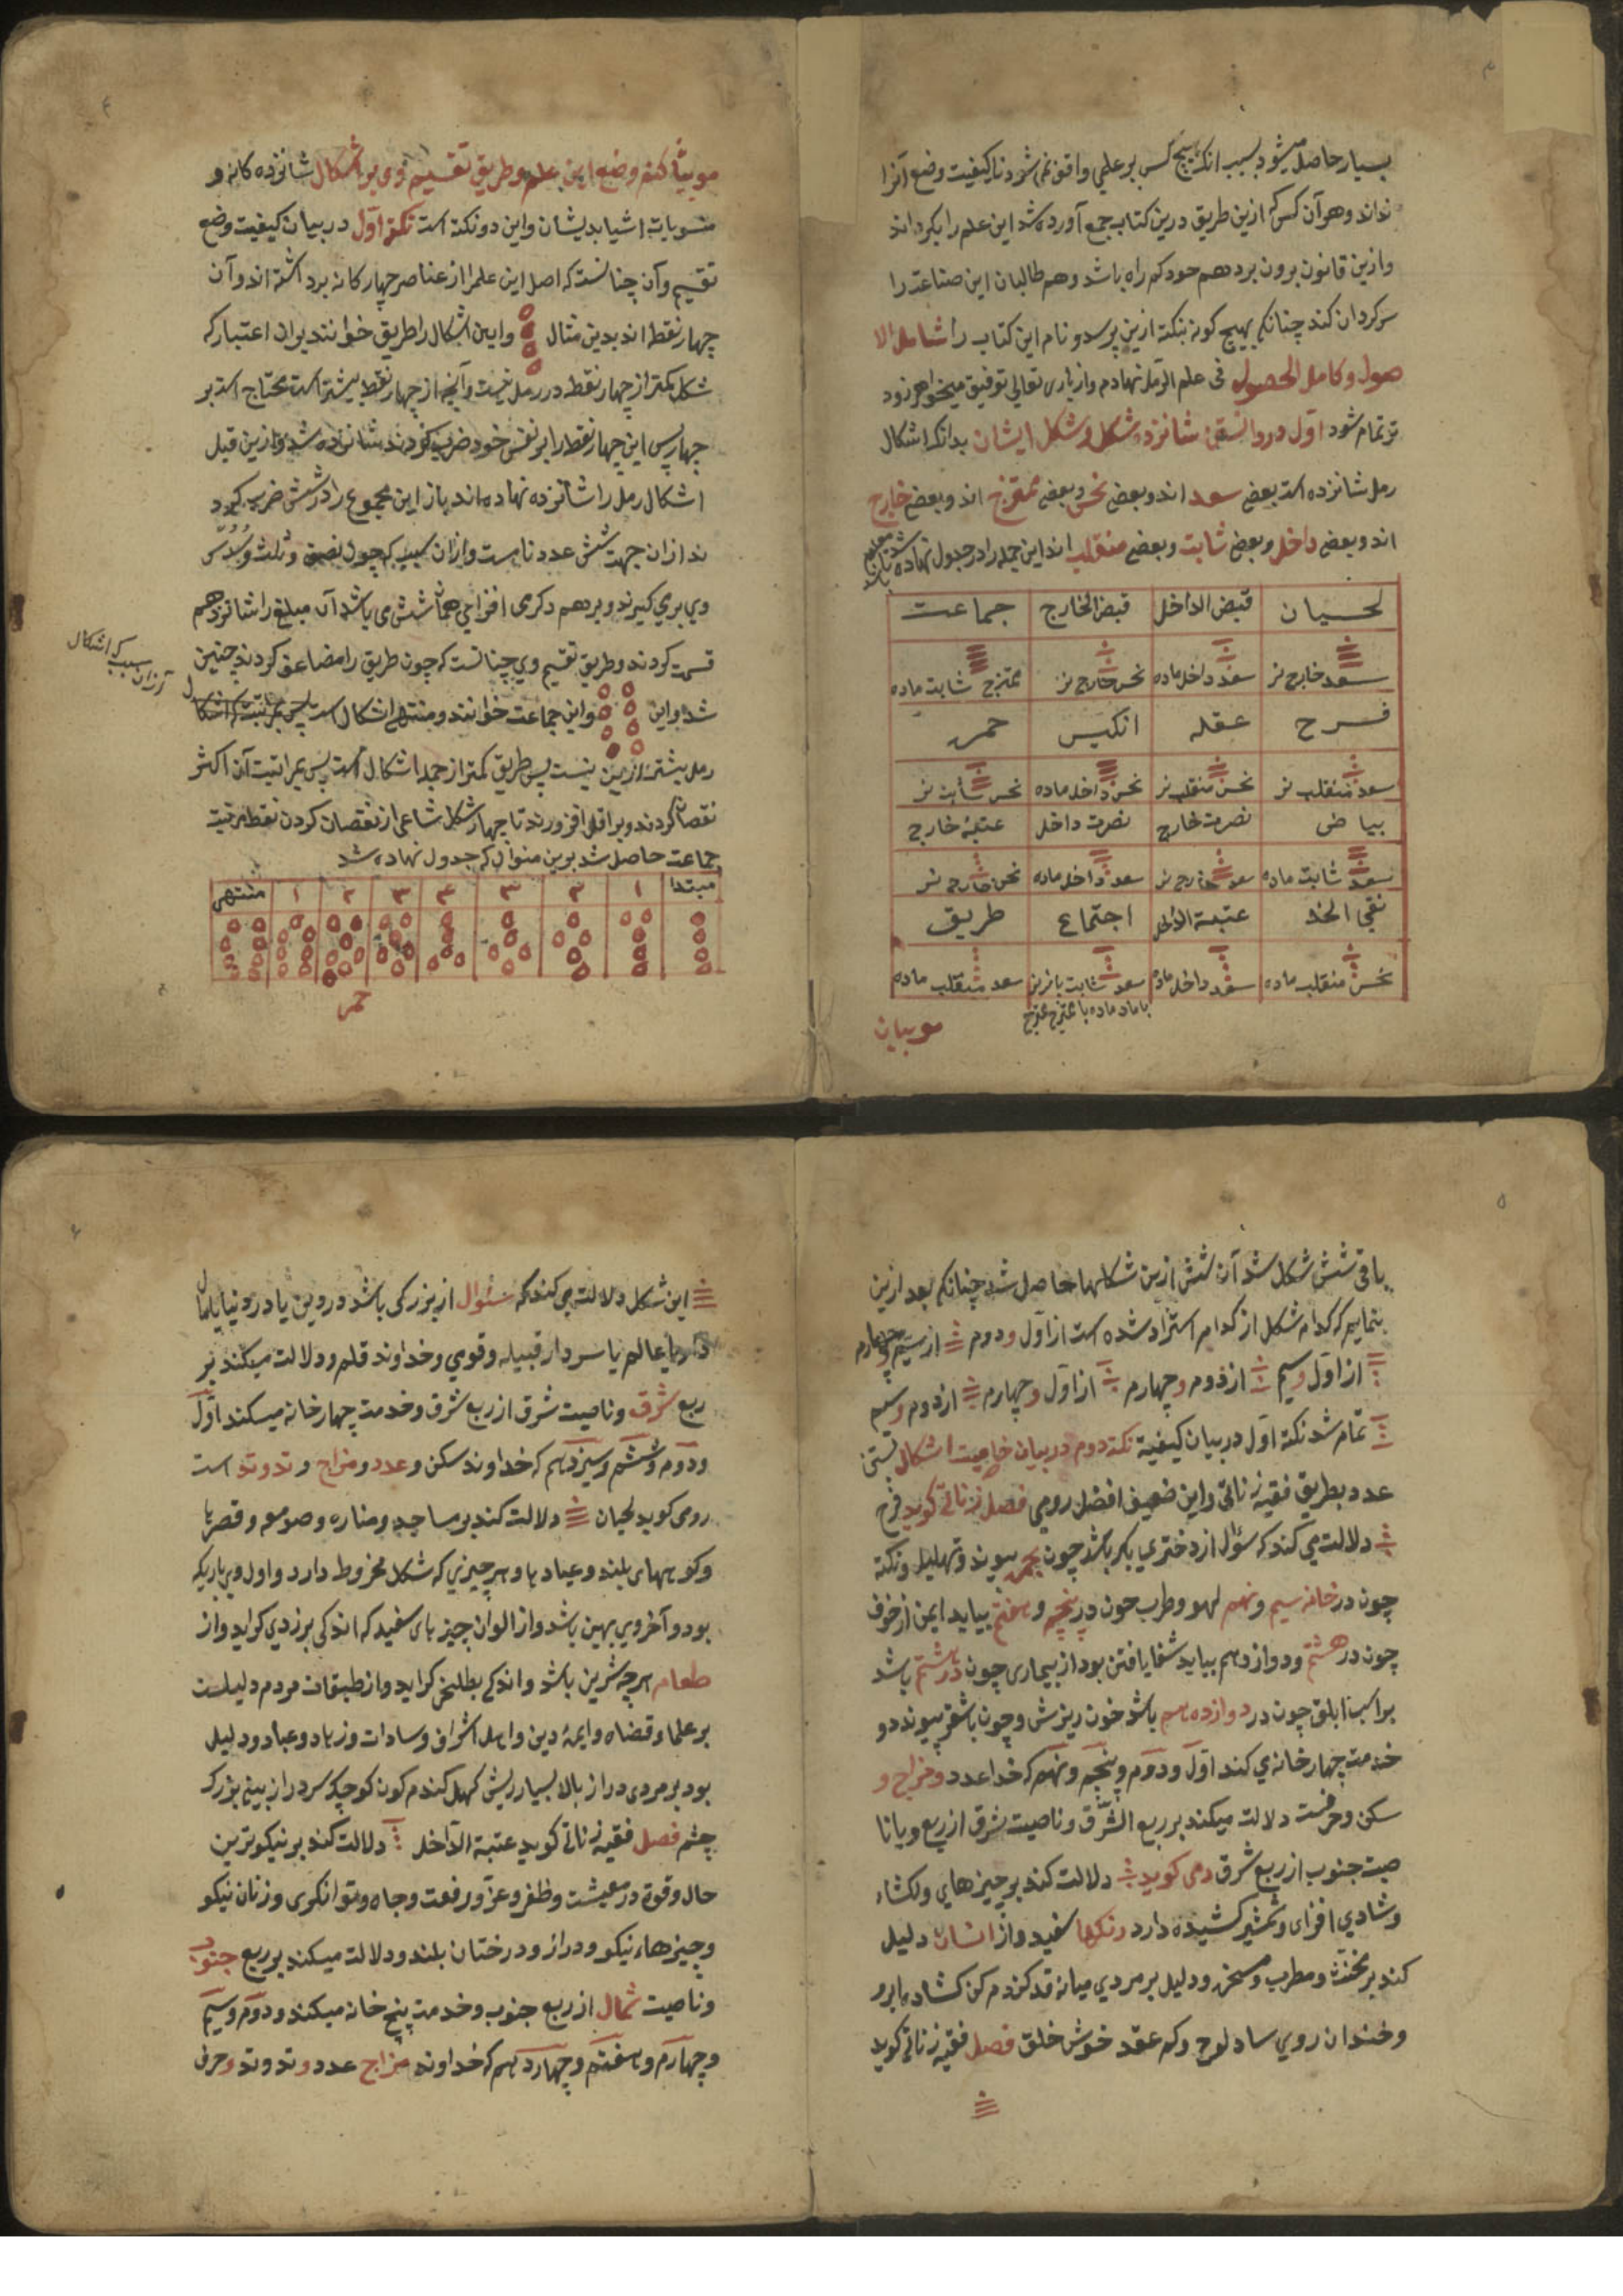 بسیار حاصل میشود بسبب انکه هیچ کس بر علمی واقف نمی شود تا کیفیت وضع آنرا
نداند و هر آن کس که ازین طریق درین کتاب جمع آورده شد این علم را
و ازین قانون برون برد هم خود کم راه باشد و هم طالبان این صناعت را
سرکردان کند چنانکه بهیچ کونه بنکته ازین پرسد و نام این کتاب را شامل الا
صول و کامل الحصول فی علم الرمل نهادم و از باری تعالی توفیق میخواهم زود
تر تمام شود اول در دانستن شانزده شکل و شکل ایشان بدانکه اشکال
رمل شانزده است بعضی سعد اند و بعضی نحس و بعضی ممتزج اند و بعضی خارج
اند و بعضی داخل و بعضی ثابت و بعضی منقلب اند این جمله را در جدول نهاده شد تا معلوم باشد
لحیان قبض الداخل قبض الخارج جماعت
سعد خارج نر سعد داخل ماده نحس خارج نر ممتزج ثابت ماده
فرح عقله انکیس حمره
سعد منقلب نر نحس منقلب نر نحس داخل ماده نحس ثابت نر
بیاض نصرت خارج نصرت داخل عتبة خارج
سعد ثابت ماده سعد خارج نر سعد داخل ماده نحس خارج نر
نقی الخد عتبة الداخل اجتماع طریق
نحس منقلب ماده سعد داخل ماده سعد ثابت با نر نر سعد منقلب ماده
با ماده ماده با ممتزج ممتزج
موبیان
موبیان کنم وضع این علم و طریق تقسیم وی بر اشکال شانزده کانه و
منسوبات اشیا بدیشان و این دو نکته است نکته اول در بیان کیفیت وضع
تقسیم و آن چنانست که اصل این علم را از عناصر چهار کانه برداشته اند و آن
چهار نقطه اند بدین مثال و این اشکال را طریق خوانند بران اعتبار که
شکل کمتر از چهار نقطه در رمل نیست و آنچه از چهار نقطه بیشتر است محتاج است بر
چهار پس این چهار نقطه را بر نفس خود ضرب کردند شانزده شد و ازین قبل
اشکال رمل را شانزده نهاده اند باز این مجموع را در شش ضرب کرد
ند از ان جهت شش عدد تا مست و ازان سبب که چون نصف و ثلث و سدس
وی بری کیرند و بر هم دکری افزایی همان شش می باشد آن مبلغ را شانزدهم
قسمت کردند و طریق تقسیم وی چنانست که چون طریق را مضاعف کردند چنین
شد و این و این جماعت خوانند و منتهی اشکال است پس مراتب اشکال
از ان سبب که اشکال
رمل بیشتر ازین نیست پس طریق کمتر از جمله اشکال است پس مراتبت آن اکثر
نقصان کردند و بر اقل افزورند تا چهار شکل شاعی از نقصان کردن نقطه مرتبت
جماعت حاصل شد برین منوال که جدول نهاده شد
مبتدا ۱ ۲ ۳ ۴ ۳ ۲ ۱ منتهی
حمره
باقی شش شکل شد آن شش ازین شکلها حاصل شد چنانکه بعد ازین
بنماییم که کدام شکل از کدام استزاد شده است از اول و دوم از سیم و چهارم
از اول و سیم از دوم و چهارم از اول و چهارم از دوم و سیم
تمام شد نکته اول در بیان کیفیة نکته دوم در بیان خاصیت اشکال
عدد بطریق فقیه زناتی و این ضعیف افضل رومی فصل زناتی کوید فرح
دلالت می کند که سؤال از دختری بکر باشد چون بحمره پیوند و تهلیط ونکته
چون در خانه سیم و نهم لهو و طرب چون در پنجم و هفتم بیاید ایمن از خوف
چون در هشتم و دوازدهم بیاید شفا یافتن بود از بیماری چون در هشتم باشد
بر اسب ابلق چون در دوازدهم باشد خون ریزش و چون با شقر پیوند دو
خدمت چهار خانه ی کند اول و دوم و پنجم و نهم که خدا عدد و مزاج و
سکن و حرفست دلالت میکند بر ربع الشرق و ناصیت شرق از ربع و یا نا
صیت جنوب از ربع شرق رمی کوید دلالت کند بر چیزهای ولکشاء
و شادی افزای و شمشیر کشیده دارد رنکها سفید و از انسان دلیل
کند بر مخنث و مطرب و مسخره و دلیل بر مردی میانه قد کندم کن کشاده ابرو
و خندان روی ساد لوح و کم عقد خوش خلق فصل فقیه زناتی کوید
این شکل دلالت می کند که سئوال از بزرکی باشد در دین یا در دنیا
یا عالم یا سردار قبیله و قوی و خداوند قلم و دلالت میکند بر
ربع شرق و ناصیت شرق از ربع شرق و خدمت چهار خانه میکند اول
و دوم و ششم و سیزدهم که خداوند سکن و عدد و مزاج و تد وتد است
رومی کوید لحیان دلالت کند بر مساجد و مناره و صومعه و قصرها
و کوههای بلند و عبادها و هر چیزی که شکل مخروط دارد و اول وی باریکه
بود و آخر وی بهین باشد و از الوان چیزهای سفید که اندکی بزردی کراید و از
طعام هر چه شرین باشد و اندکی بطلخی کراید و از طبقات مردم دلیلست
بر علما و قضاه و ایمهٔ دین و اهل اشراف و سادات و زهاد و عباد و دلیل
بود بر مردی دراز بالا بسیار ریش کهل کندم کون کوچک سر دراز بینی بزرک
چشم فصل فقیه زناتی کوید عتبة الداخل دلالت کند بر نیکوترین
حال و قوة در معیشت و ظفر و عز و رفعت و جاه و توانکری و زنان نیکو
و چیزهاء نیکو و دراز و درختان بلند و دلالت میکند بر ربع جنوب
و ناصیت شمال از ربع جنوب و خدمت پنج خانه میکند و دوم و سیم
و چهارم و هفتم و چهاردهم که خداوند مزاج عدد وتد وتد و حرف